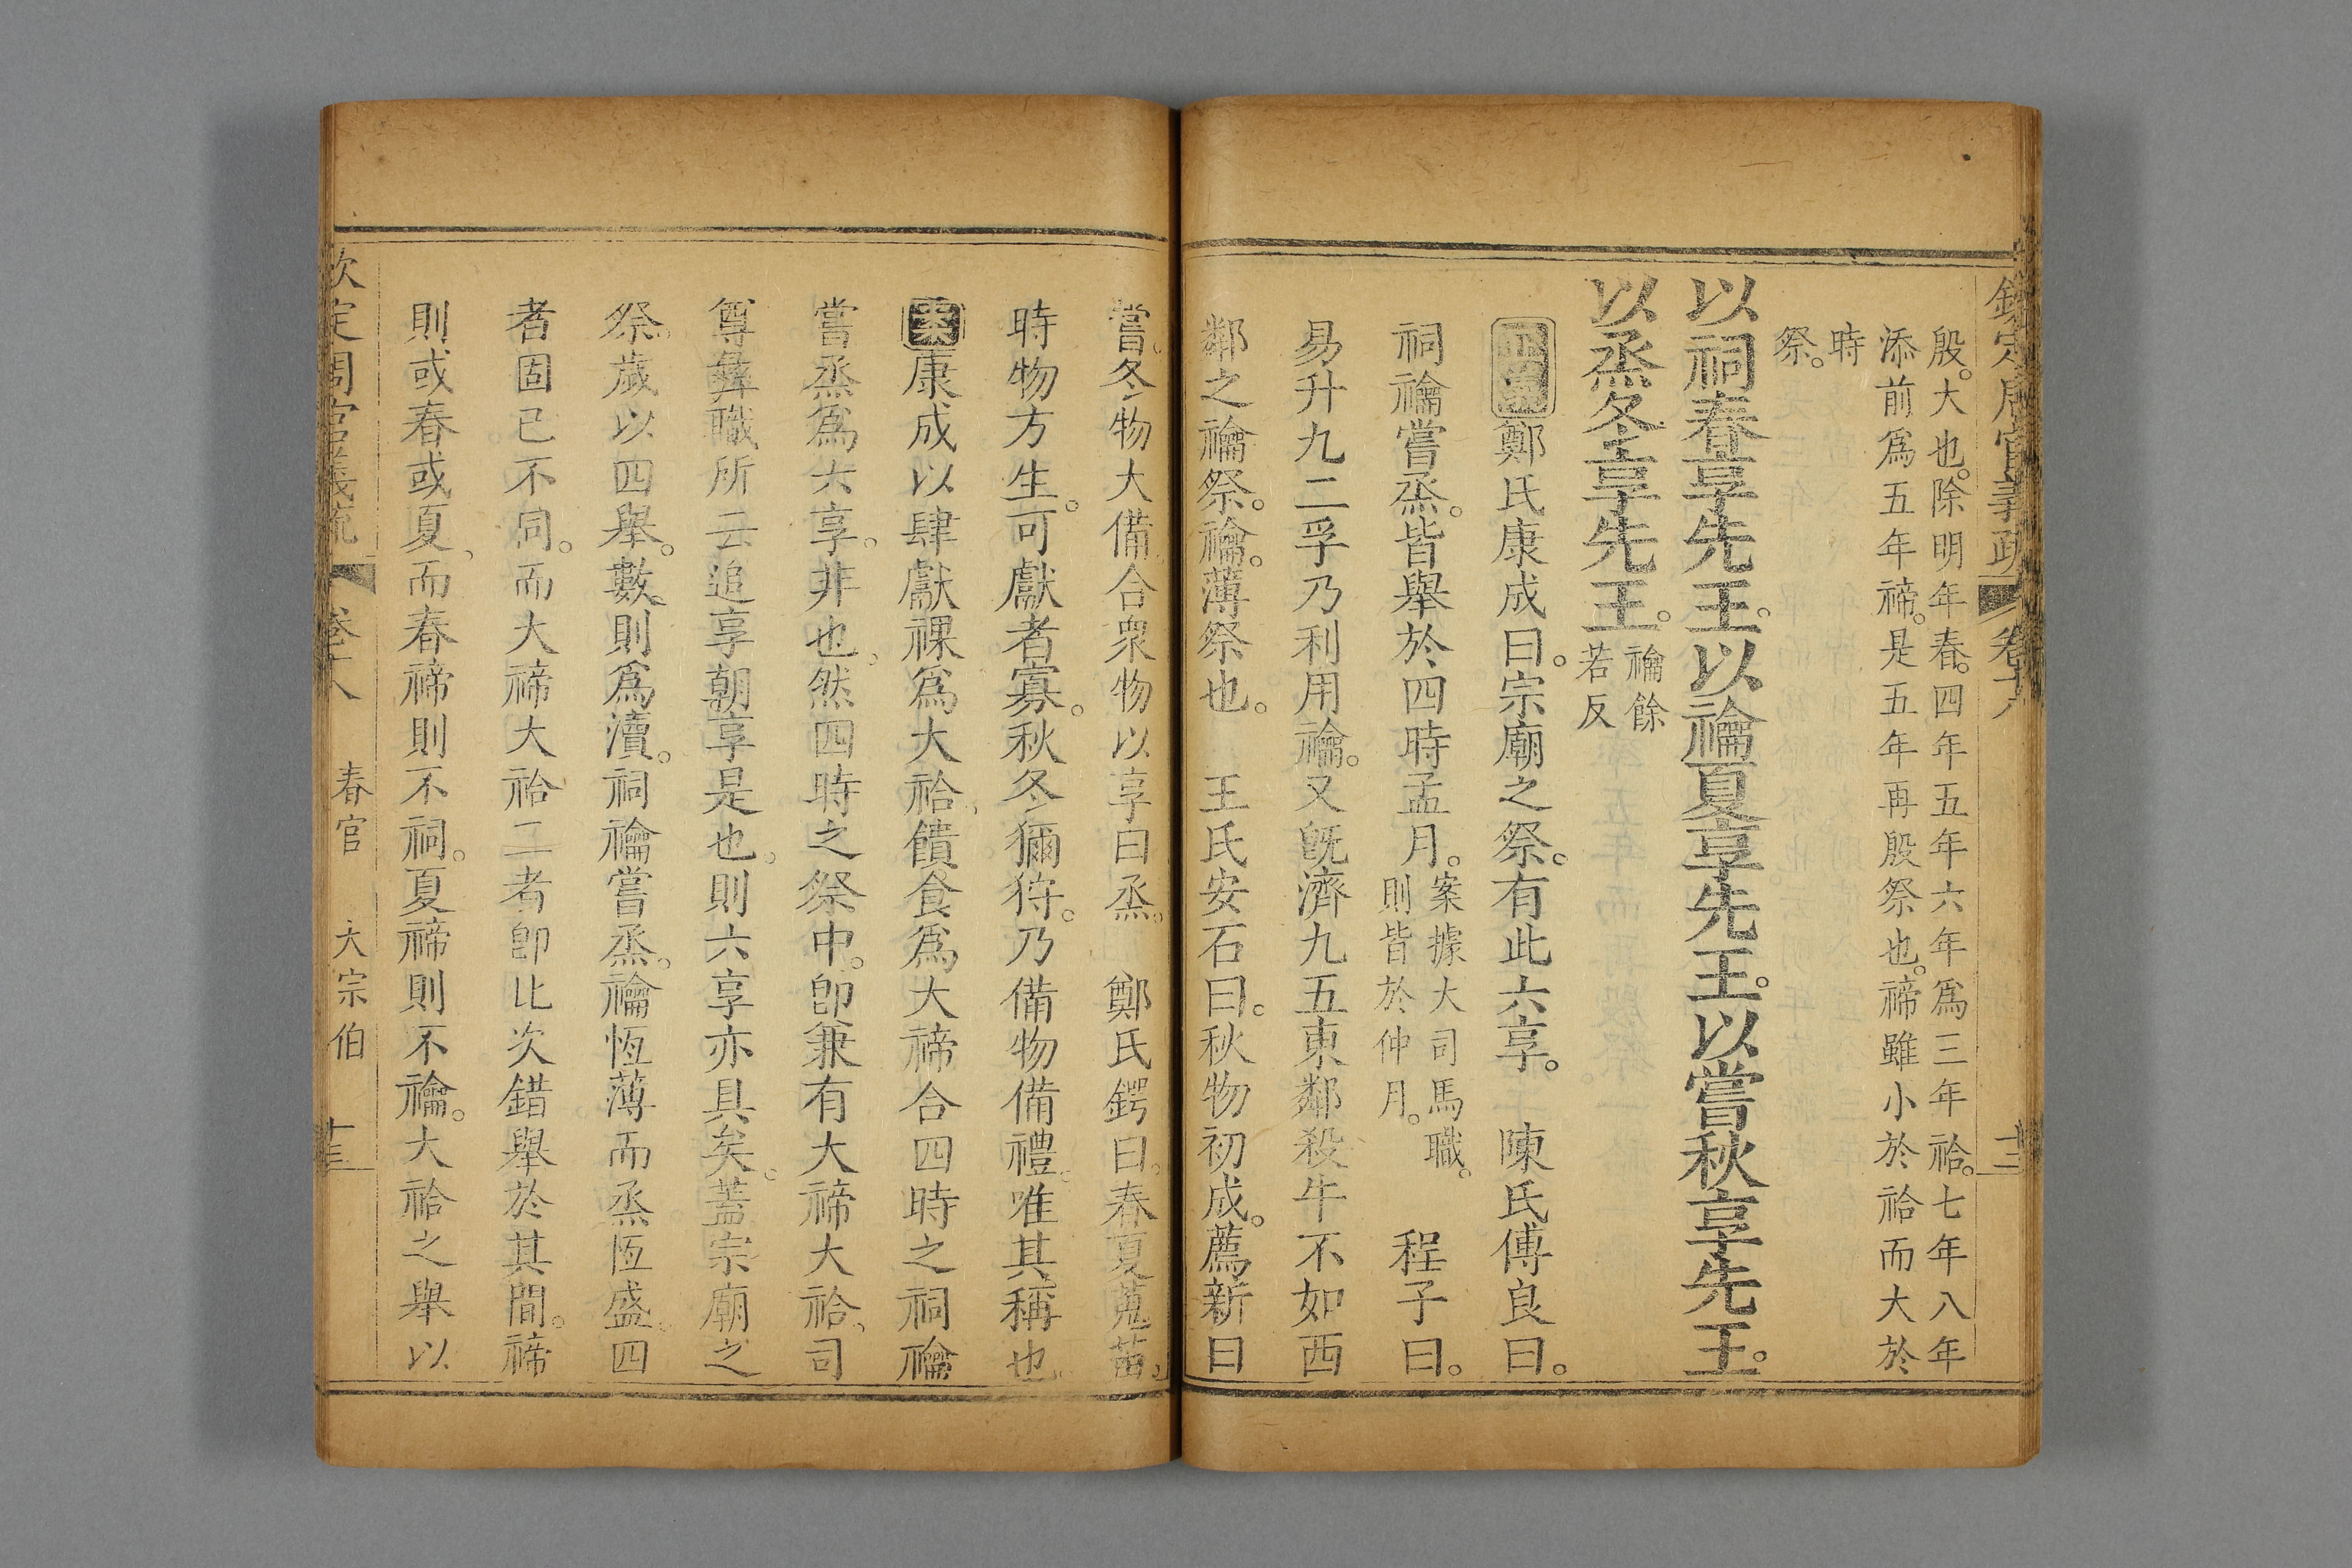 欽定周官義疏 卷十八 十二
殷。大也。除明年春。四年五年六年爲三年祫。七年八年
添前爲五年禘。是五年再殷祭也。禘雖小於祫而大於
時
祭。
以祠春享先王。以禴夏享先王。以嘗秋享先王。
以烝冬享先王。禴餘
若反
正義鄭氏康成曰。宗廟之祭。有此六享。 陳氏傅良曰。
祠禴嘗烝。皆舉於四時孟月。案據大司馬職。
則皆於仲月。 程子曰。
易升九二孚乃利用禴。又旣濟九五東鄰殺牛不如西
鄰之禴祭。禴。薄祭也。 王氏安石曰。秋物初成。薦新曰
嘗。冬物大備。合衆物以享曰烝。 鄭氏鍔曰。春夏蒐苗。
時物方生。可獻者寡。秋冬獮狩。乃備物備禮。唯其稱也。
案康成以肆獻祼爲大祫、饋食爲大禘合四時之祠禴
嘗烝爲六享。非也、然四時之祭中。卽兼有大禘大祫、司
尊彝職所云追享朝享是也。則六享亦具矣。蓋宗廟之
祭。歲以四舉。數則爲瀆。祠禴嘗烝。禴恆薄而烝恆盛。四
者固已不同。而大禘大祫二者卽比次錯舉於其間。禘
則或春或夏、而春禘則不祠。夏禘則不禴。大祫之舉以
欽定周官義疏 卷十八 春官 大宗伯 十三